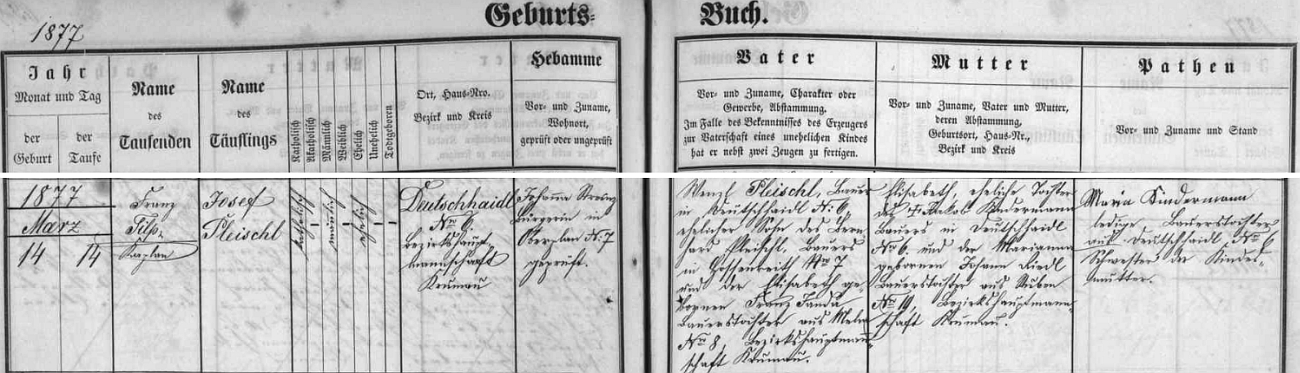 1877
Geburts=
Buch.
Jahr
Monat und Tag
der
Geburt
der
Taufe
Name
des
Taufenden
Name
des
Täuflings
Katholisch
Akatholisch
Männlich
Weiblich
Ehelich
Unehelich
Todtgeboren
Ort, Haus-Nro.
Bezirk und Kreis
Hebamme
Vor- und Zuname,
Wohnort,
geprüft oder ungeprüft
Vater
Vor- und Zuname, Charakter oder
Gewerbe, Abstammung,
Im Falle des Bekenntnisses des Erzeugers
zur Vaterschaft eines unehelichen Kindes
hat er nebst zwei Zeugen zu fertigen.
Mutter
Vor- und Zuname, Vater und Mutter,
deren Abstammung,
Geburtsort, Haus-Nr.,
Bezirk und Kreis
Pathen
Vor- und Zuname und Stand
1877
März
14 14
Franz
Kaplan
Josef
Pleischl
katholisch
männlich
ehelich
Deutschhaidl
No 6.
Bezirkshaupt-
mannschaft
Krumau
Johanna
Bürgerin in
Oberplan N: 7
geprüft.
Wenzl Pleischl, Bauer
in Deutschhaidl N: 6,
ehelicher Sohn des Bern-
hard Pleischl, Bauers
in No 7
und der Elisabeth ge-
bornen Franz Janda
Bauerstochter aus
No 8, Bezirkshauptmann-
schaft Krumau.
Elisabeth, eheliche Tochter
des Jakob Kindermann
Bauers in Deutschhaidl
No 6. und der Marianna
gebornen Johann Riedl
Bauerstochter aus Stuben
No 19, Bezirkshauptmann-
schaft Krumau.
Maria Kindermann
ledige Bauerstochter
aus Deutschhaidl No 6
Schwester der Kindes-
mutter.